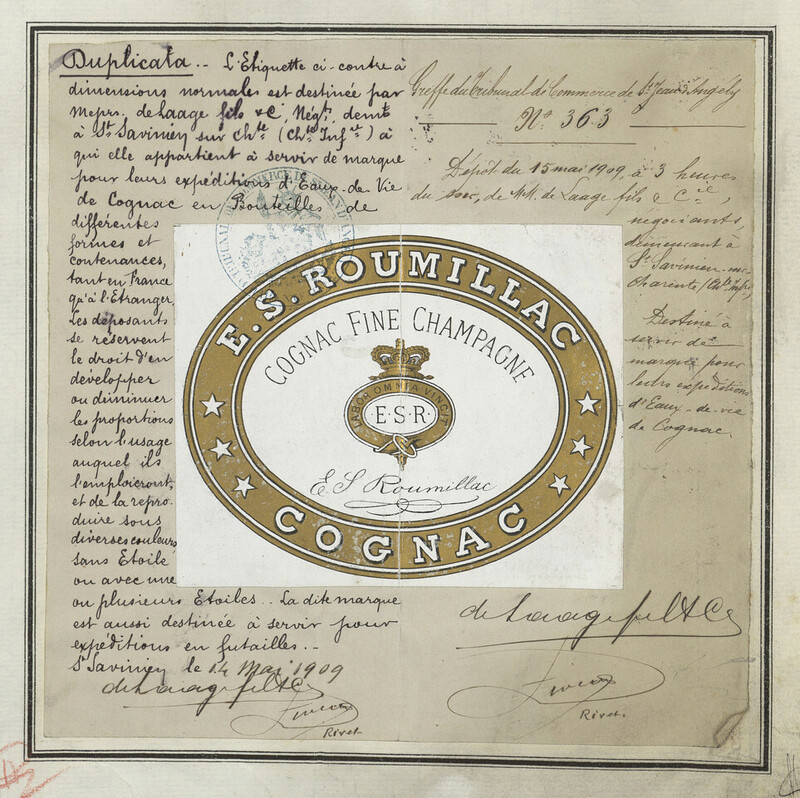 Duplicata.. L'Etiquette ci-contre à
dimensions normales est destinée par
Messrs. de Laage fils & Cie, Négts, demt
à St Savinien sur Chte (Chte Infre) à
qui elle appartient à servir de marque
pour leurs expéditions d'Eaux-de-Vie
de Cognac en Bouteilles de
différentes
formes et
contenances,
tant en France
qu'à l'Etranger.
Les déposants
se réservent
le droit d'en
développer
ou diminuer
les proportions
selon l'usage
auquel ils
l'emploieront,
et de la repro-
duire sous
diverses couleurs,
sans Etoile
ou avec une
ou plusieurs Etoiles.. La dite marque
est aussi destinée à servir pour
expéditions en futailles..
St Savinien le 14 Mai 1909
de Laage fils & Cie
Rivet
Greffe du Tribunal de Commerce de St Jean d'Angély
No 363
Dépôt du 15 mai 1909, à 3 heures
du soir, de MM. de Laage fils & Cie,
négociants,
demeurant à
St Savinien-sur-
Charente (Chte Infre)
Destiné à
servir de
marque pour
leurs expéditions
d'Eaux-de-vie
de Cognac.
de Laage fils & Cie
Rivet.
E.S. ROUMILLAC
COGNAC FINE CHAMPAGNE
LABOR OMNIA VINCIT
E·S·R·
E S Roumillac
COGNAC